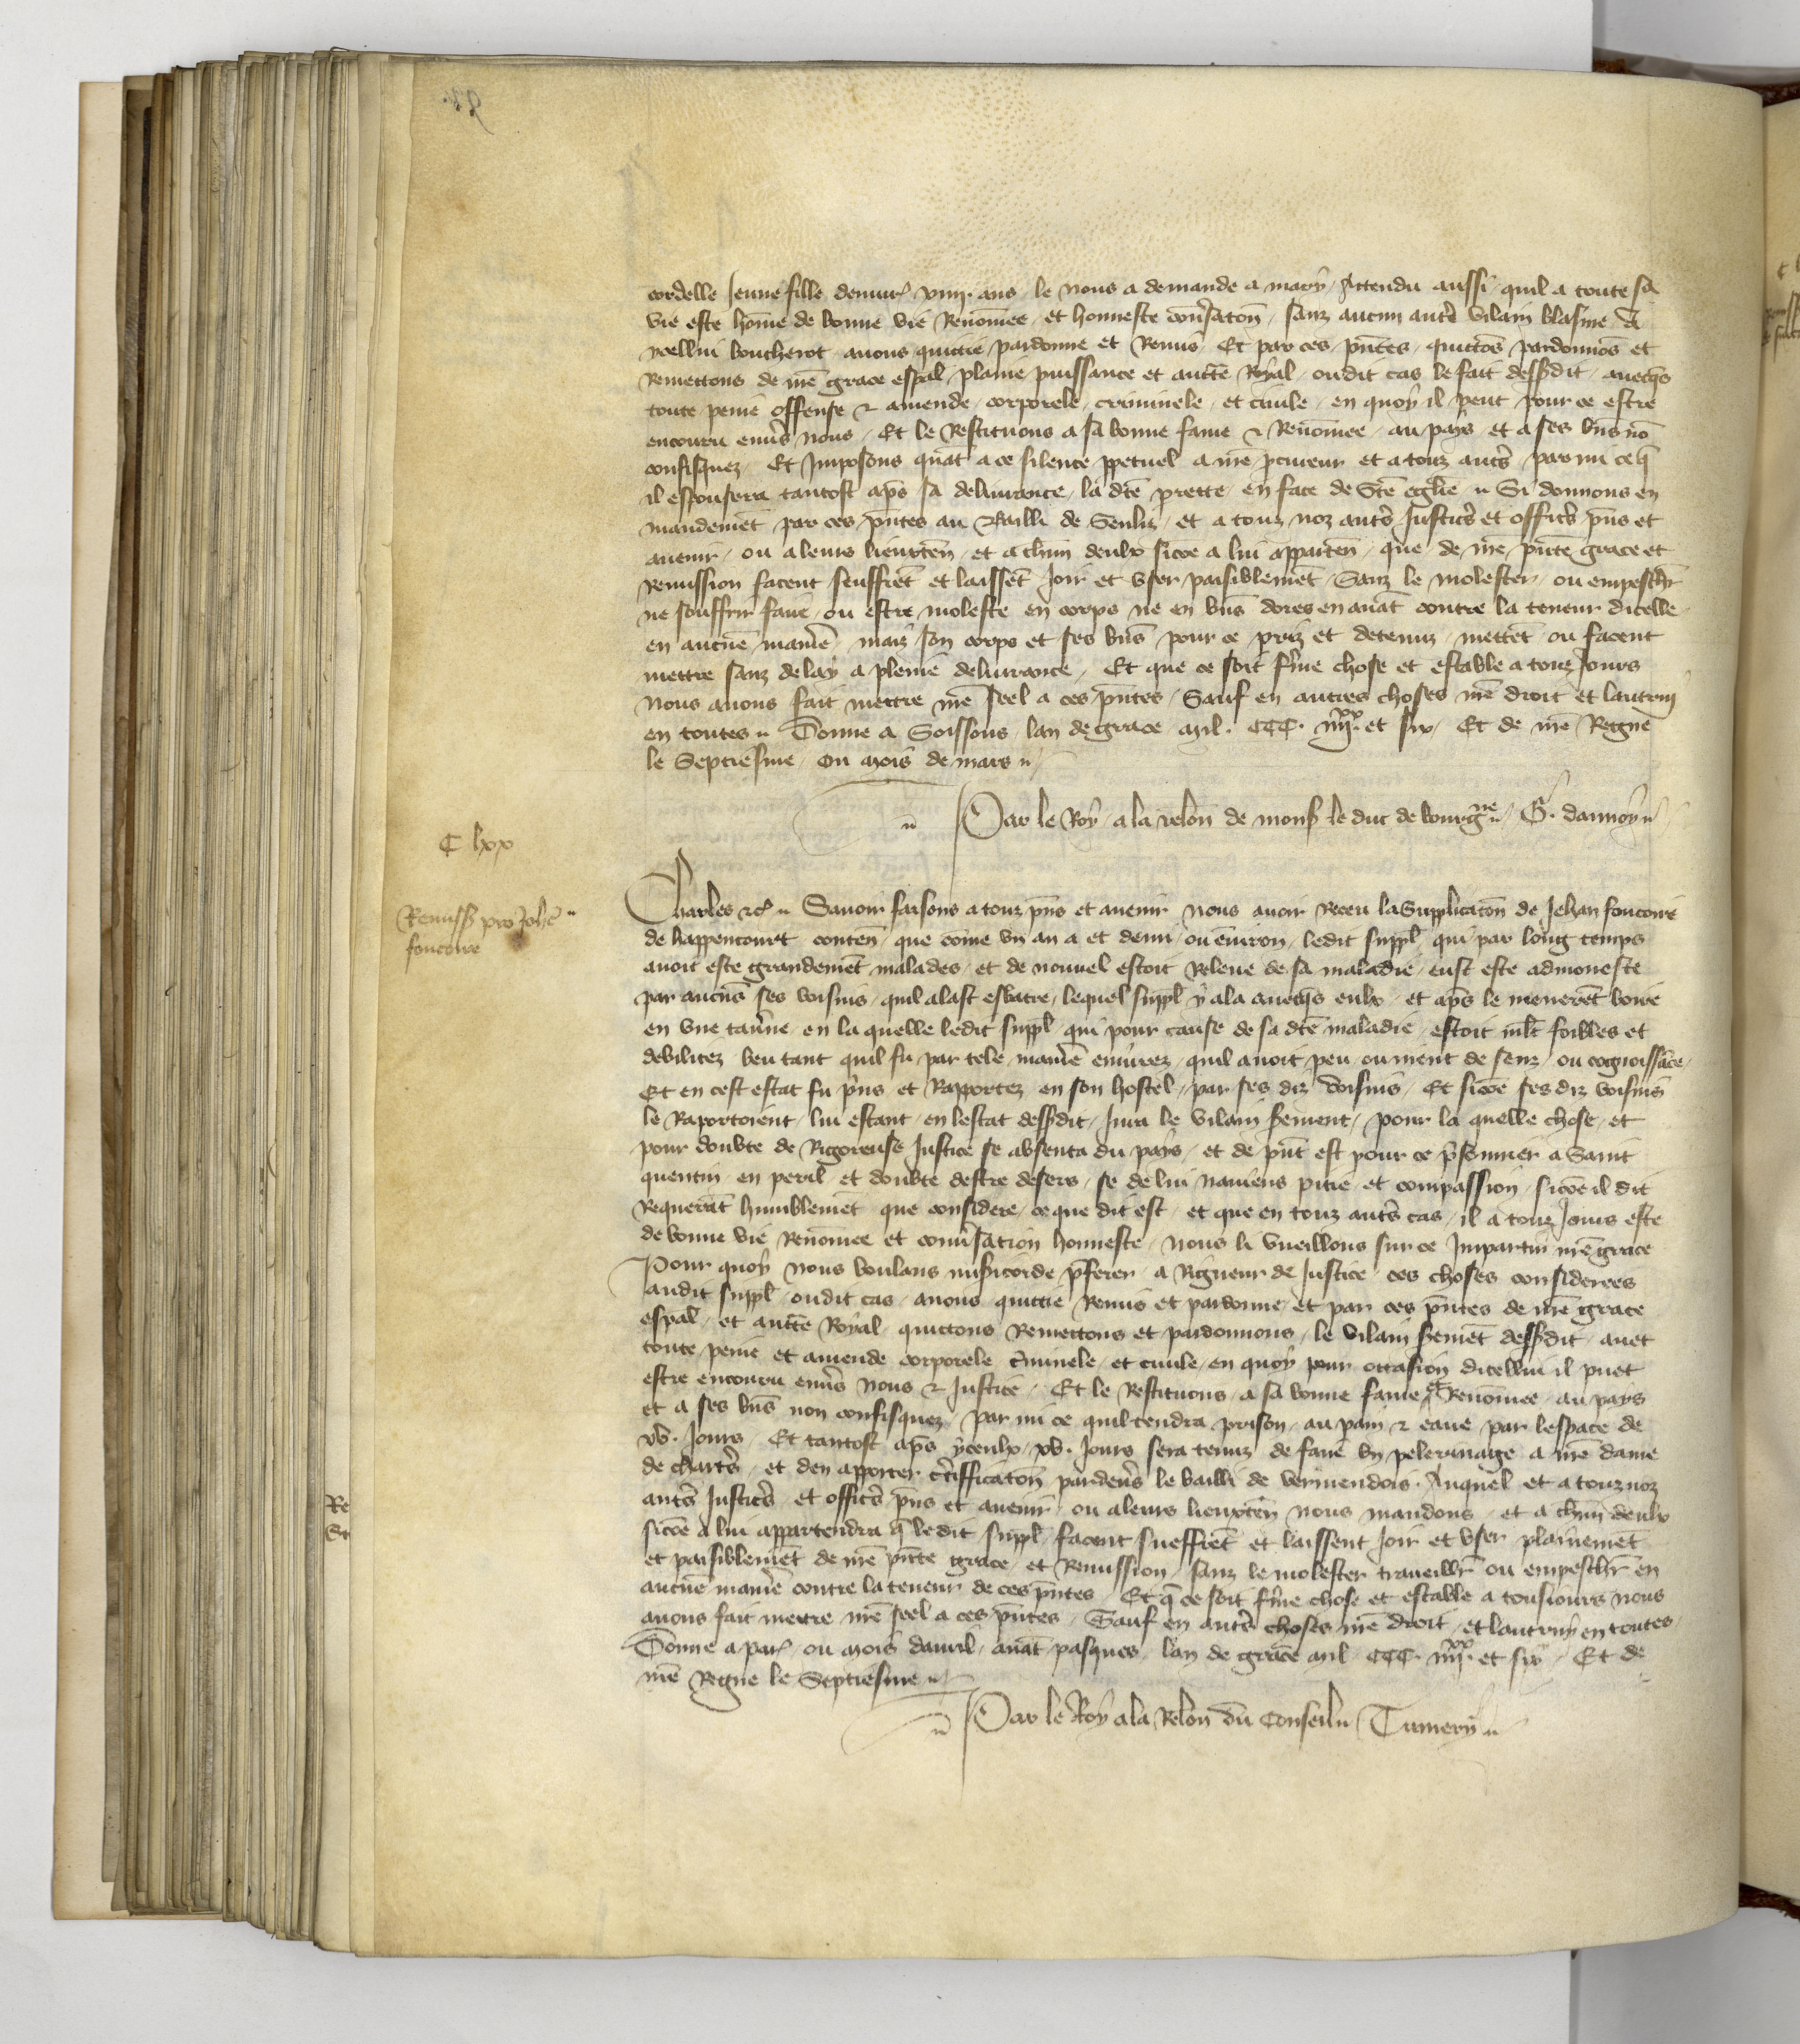 cordelle Jeune fille denuir⁹ xviij. ans le nous a demande a mary / Attendu aussi quil a toute sa
vie este hōme de bonne vie Renōmee et honneste conv̄satōn / sanz aucun autre vilain blasme a
ycellui boucherot auons quittie pardonne et Remis / Et par ces pñtes quittōs pardonnōs et
Remettons de nr̄e grace esp̄al plaine puissance et auctte Royal oudit cas le fait dessusdit auecq̄s
toute peine offense & amende corporele criminele et ciuile en quoy il peut pour ce estre
encouru enuēs nous / Et le Restituons a sa bonne fame & Renōmee au pays et a ses biēs nō
confisquez / Et Imposons quāt a ce silence p̱petuel a nr̄e p̱cureur et a touz aut̄s parmi ce q̄
il espousera tantost ap̄s sa deliurance la dc̄e prette en face de Ste eglīe // Si donnons en
mandemēt par ces pñtes au Bailli de Senliz et a touz noz aut̄s Justic̄s et offic̄s pñs et
auenir ou a leurs lieuxten̄ et a chūn deulx sicōe a lui apparten̄ que de nr̄e pñte grace et
Remission facent seuffrēt et laissēt Joir et vser paisiblemēt Sanz le molester ou empeschr̄
ne souffrir faire ou estre moleste en corps ne en biēs dores en auāt contre la teneur dicelle
en aucūe maniēe mais son corps et ses biēs pour ce priz et detenuz mettēt ou facent
mettre sanz delay a pleine deliurance / Et que ce soit fr̄me chose et estable a touz Jours
Nous auons fait mettre nr̄e seel a ces pñtes / Sauf en autres choses nr̄e droit et lautruy
en toutes // Donne a Soissons lan de grace mil. CCC. iiij.xx et six / Et de nr̄e Regne
le Septiesme / Ou mois de mars //
// Par le Roy a la relōn de mons̄ le duc de bourgne // G. daunoy //
C lxx
Charles &c̄ // Sauoir faisons a touz pñs et auenir Nous auoir Receu la Supplicatōn de Jehan foucoire
Remiss̄ pro Joh̄e
foucoire
de happencourt conten̄ que cōme vn an a et demi ou enuiron ledit suppl̄ qui par long temps
auoit este grandemēt malades et de nouuel estoit Releue de sa maladie eust este admoneste
par aucūs ses voisins quil alast esbatre lequel suppl̄ y ala auecq̄s eulx et ap̄s le menerēt boire
en vne tauēne en la quelle ledit suppl̄ qui pour cause de sa dc̄e maladie estoit ml̄t foibles et
debilitez beu tant quil fu par tele maniēe enyurez quil auoit peu ou nient de senz ou cognoissāce
Et en cest estat fu prins et Rapportez en son hostel par ses diz voisins / Et sicōe ses diz voisins
le Raportoient lui estant en lestat dessusdit Jura le vilain s̄ement / pour la quelle chose et
pour doubte de Rigoreuse Justice se absenta du pays et de pñt est pour ce p̄sonnier a Saint
quentin en peril et doubte destre desers / se de lui nauiens pitie et compassion sicōe il dit
Requerāt humblemēt que considere ce que dit est et que en touz aut̄s cas il a touz Jours este
de bonne vie Renōmee et conuēsation honneste Nous li vueillons sur ce Impartir nr̄e grace
Pour quoy nous voulans mis̄icorde p̄ferer a Rigueur de Justice ces choses considerees
audit suppl̄ oudit cas auons quittie Remis et pardonne et par ces pñtes de nr̄e grace
esp̄al et auctte Royal quittons Remettons et pardonnons le vilain s̄emēt dessusdit auec
toute peine et amende corporele c̄minele et ciuile en quoy pour occasion dicellui il puet
estre encouru enuēs nous & Justice / Et le Restituons a sa bonne fame et Renōmee au pays
et a ses biēs non confisquez / par mi ce quil tendra prison au pain & eaue par lespace de
xv. Jours / Et tantost ap̄s yceulx xv. Jours sera tenuz de faire vn pelerinage a nr̄e dame
de chartēs et den apporter c̄tifficatōn pardeuēs le bailli de vermendois / Auquel et a touz noz
aut̄s Justic̄s et offic̄s pñs et auenir ou a leurs lieuxten̄ nous mandons et a chūn deulx
sicōe a lui appartendra q̄ ledit suppl̄ facent sueffrēt et laissent Joir et vser plainemēt
et paisiblemēt de nr̄e pñte grace et Remission sanz le molester traueillr̄ ou empeschr̄ en
aucūe maniēe contre la teneur de ces pñtes / Et q̄ ce soit fr̄me chose et estable a tousiours nous
auons fait mettre nr̄e seel a ces pñtes / Sauf en aut̄s choses nr̄e droit et lautruy en toutes
Donne a par⁹ ou mois dauril auāt pasques lan de grace mil CCC. iiij.xx et six / Et de
nr̄e Regne le Septiesme //
// Par le Roy a la Relōn du Conseil // Tumery //